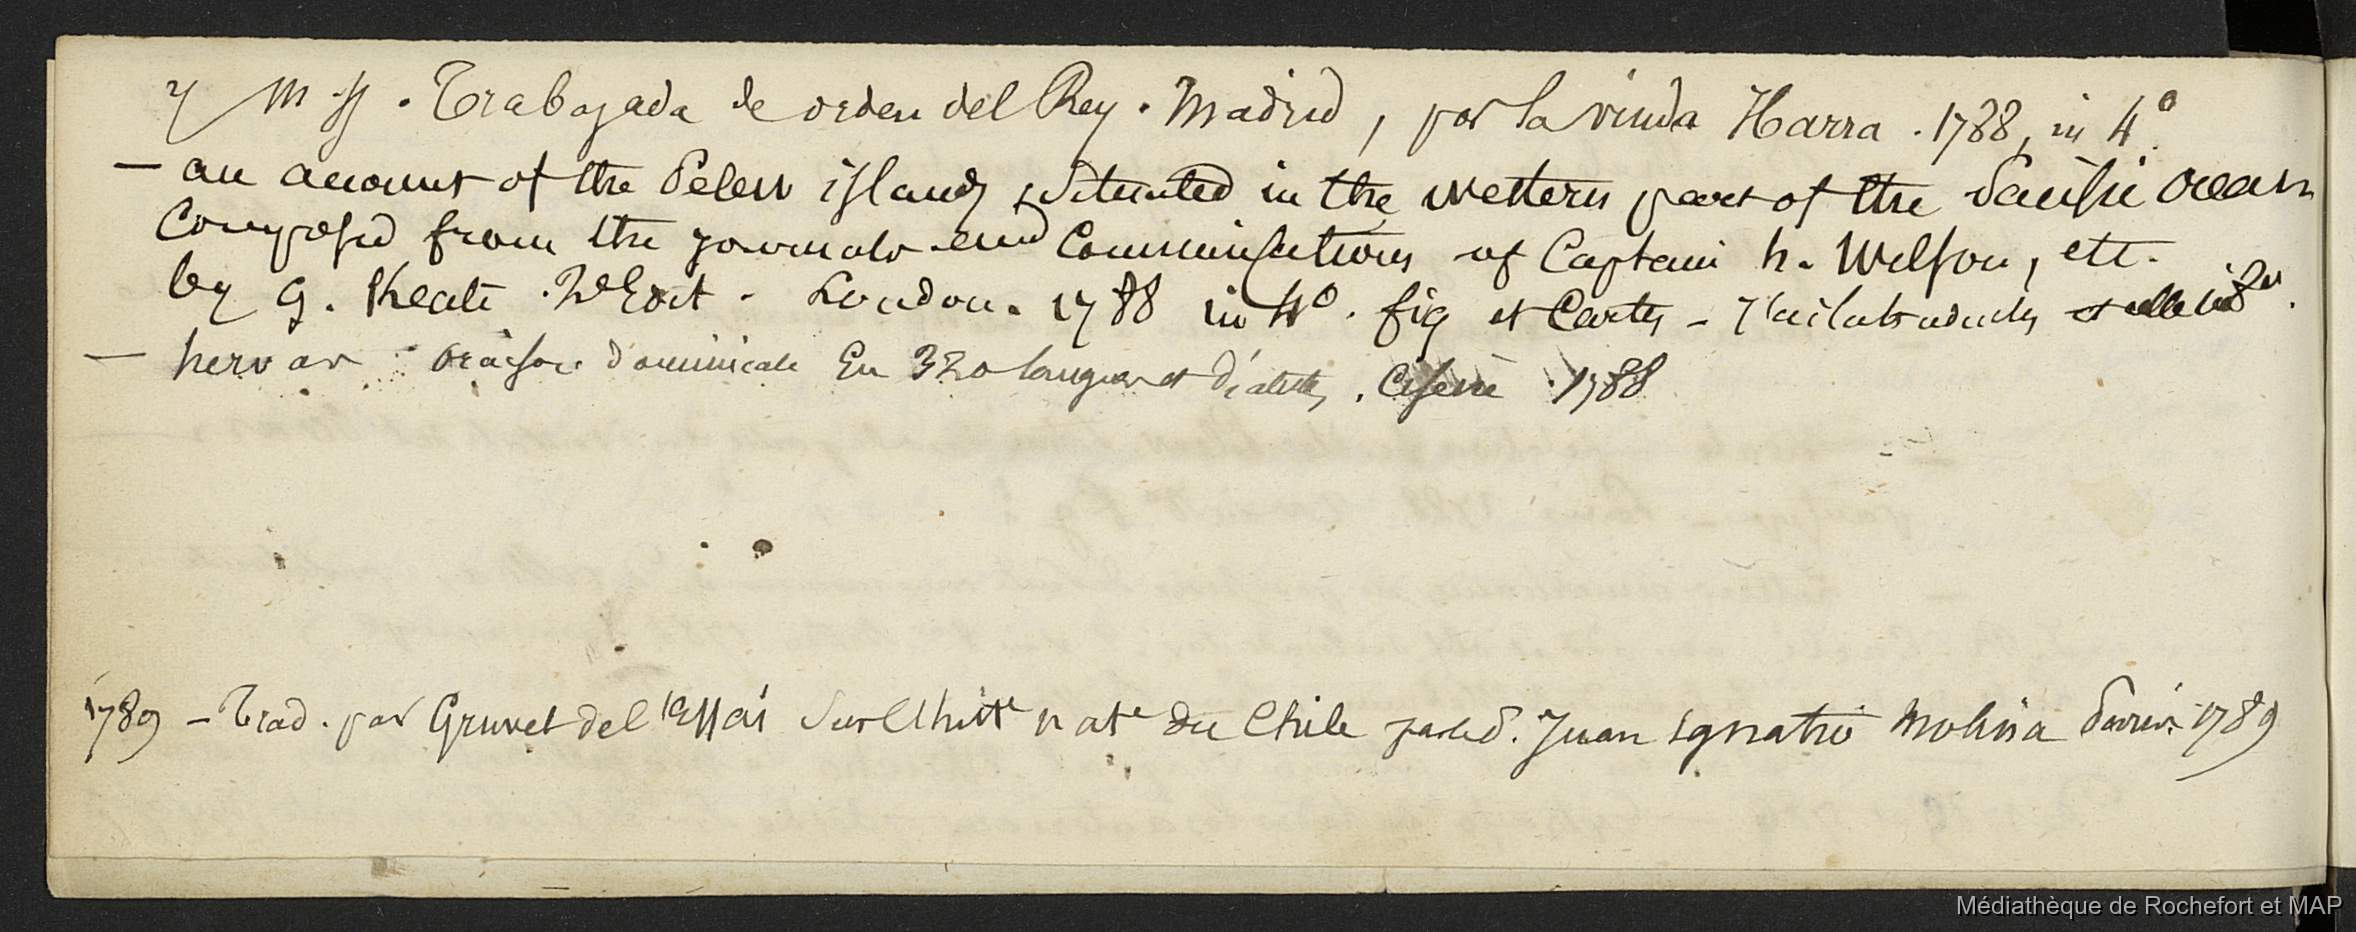 y Mss. Trabajada de orden del Rey. Madrid, por la viuda Ibarra. 1788, in 4°.
— an account of the Pelew islands, situated in the western part of the Pacific Ocean
Composed from the journals and Communications of Captain h. Wilson, etc.
by G. Keate. 2d Edit. London. 1788 in 4°. fig et Cartes –
— hervas oraison dominicale En 320 langues et dialectes. Césene 1788
1789 – Trad. par Gruvel del Essai sur l'histe nate du Chile par d. Juan Ignatio Molina Paris 1789
Médiathèque de Rochefort et MAP